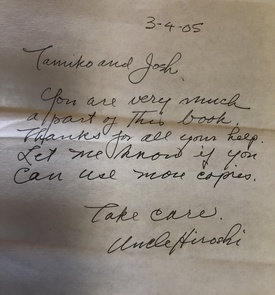 3-4-05
Tamiko and Josh,
You are very much
a part of this book.
Thanks for all your help.
Let me know if you
can use more copies.
Take care.
Uncle Hiroshi